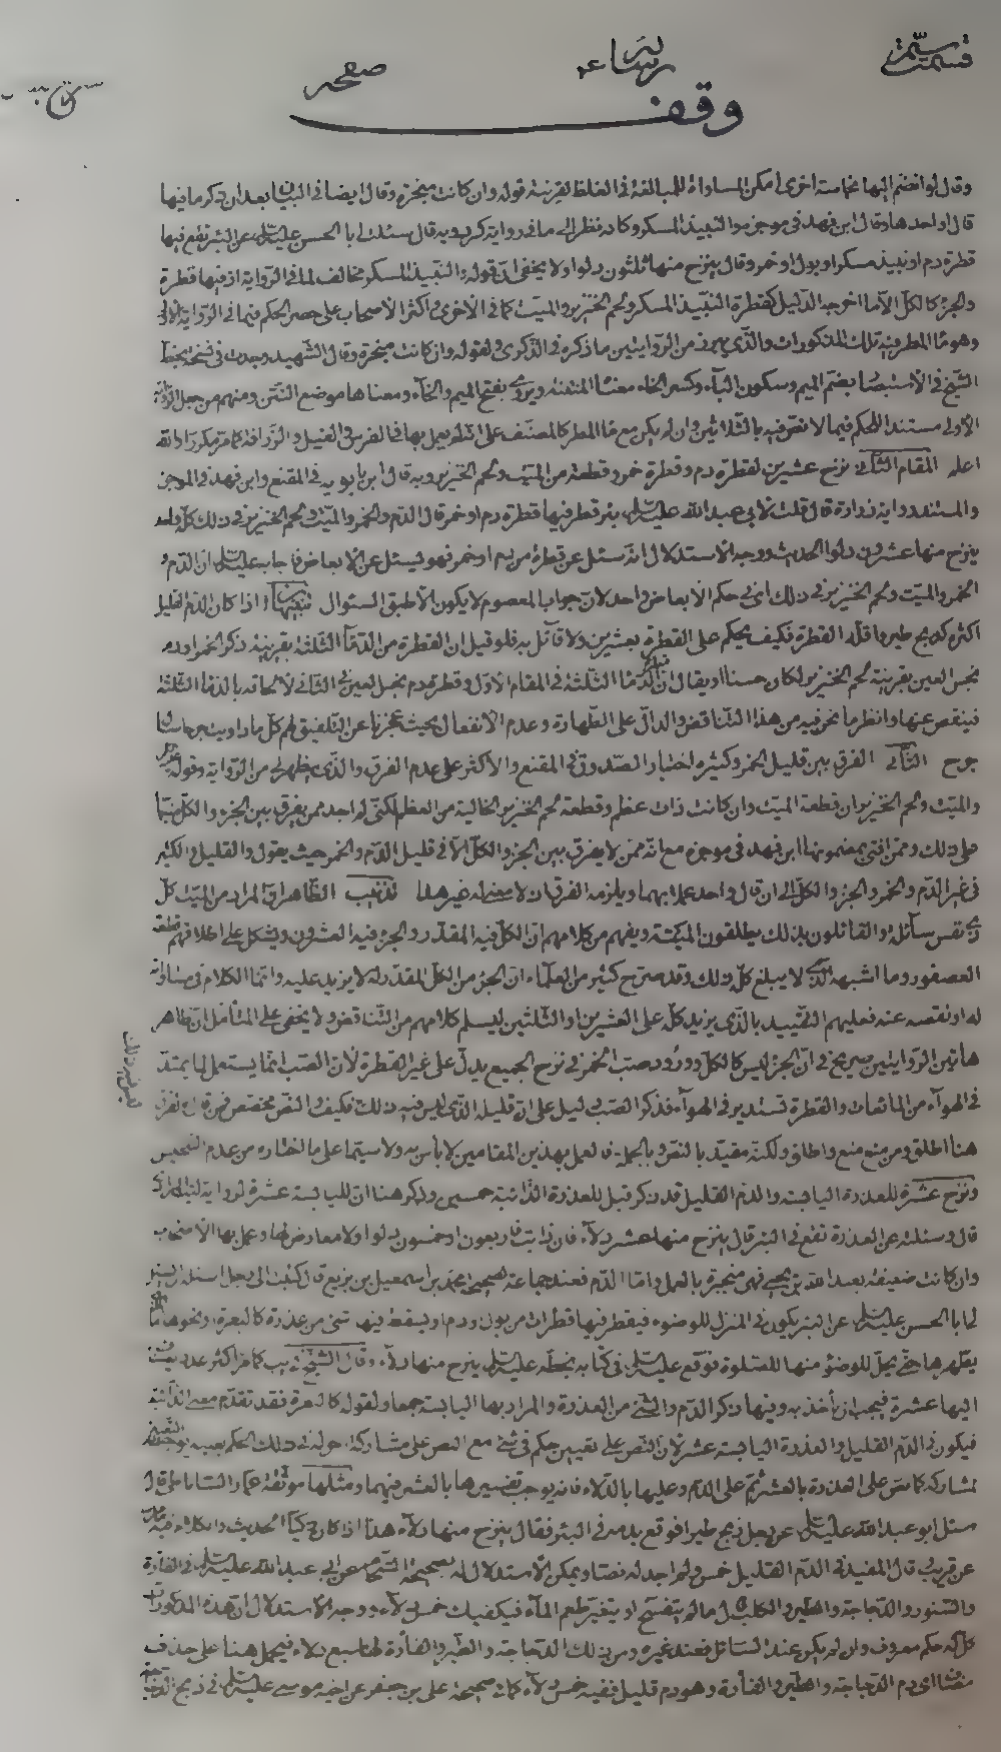 وقف
صفحه
وقال لو انضم اليها نجاسة اخرى امكن المساواة للمبالغة فى الغلظ لقرينة قوله وان كانت مبخرة وقال ايضا فى البيان بعد ان ذكر ما فيها
قال او احدها وقال ابن فهد فى موجزه والنبيذ المسكر وكانه نظر الى ما فى رواية كردويه قال سئلت ابا الحسن عليه السلام عن البئر تقع فيها
قطرة دم او نبيذ مسكر او بول او خمر وقال ينزح منها ثلثون دلوا ولا يخفى ان قوله والنبيذ المسكر مخالف لما فى الرواية اذ فيها قطرة
والجزء كالكل الا ما اخرجه الدليل كقطرة النبيذ المسكر ولحم الخنزير والميت كما فى الاخرى واكثر الاصحاب على حصر الحكم فيما فى الرواية الاولى
وهو ماء المطر فيه تلك المذكورات والذى من الروايتين ما ذكره فى الذكرى ولقوله وان كانت مبخرة وقال الشهيد وجدت فى نسخة بخط
الشيخ فى الاستبصار بضم الميم وسكون الباء وكسر الخاء معناها المنتنة ويروى بفتح الميم والخاء ومعناها موضع النتن ومنهم من جعل الرواية
الاولى مستند الحكم فيما لا نص فيه بالثلاثين وان لم يكن مع ماء المطر كالمصنف على انه لم يعمل بها فى الفرس فى الفيل و كما مر مكررا والله
اعلم المقام الثانى نزح عشرين لقطرة دم وقطرة خمر وقطعة من الميت ولحم الخنزير وبه قال ابن بابويه فى المقنع وابن فهد فى الموجز
والمستند رواية زرارة قال قلت لابى عبد الله عليه السلام بئر قطر فيها قطرة دم او خمر قال الدم والخمر والميت ولحم الخنزير فى ذلك كله واحد
ينزح منها عشرون دلوا الحديث ووجه الاستدلال انه سئل عن قطرة من دم او خمر فهو يسئل عن الابعاض فاجاب عليه السلام ان الدم و
الخمر والميت ولحم الخنزير فى ذلك اى فى حكم الابعاض واحد لان جواب المعصوم لا يكون الا طبق السئوال تنبيهات ا اذا كان الدم القليل
اكثره كذبح طير واقله القطرة فكيف يحكم على القطرة بعشرين ولا قائل به فلو قيل ان القطرة من الدماء الثلثة بقرينة ذكر الخمر او دم
نجس العين بقرينة لحم الخنزير لكان حسنا او يقال ان الدماء الثلثة فى المقام الاول وقطرة دم نجس العين فى الثانى لا لحاقه بالدماء الثلثة
فينقص عنها وانظر ما نحن فيه من هذا التناقض والدال على الطهارة وعدم الانفعال بحيث عجزنا عن التلفيق لهم كل ما داويت جرحا سال
جرح الثانى الفرق بين قليل الخمر وكثيره اختيار الصدوق فى المقنع والاكثر على عدم الفرق والذى يظهر لى من الرواية وقوله
والميت ولحم الخنزير ان قطعة الميت وان كانت ذات عظم وقطعة لحم الخنزير الخالية من العظم لكنى لم اجد ممن يفرق بين الجزء والكل
على ذلك وممن افتى بمضمونها ابن فهد فى موجزه مع انه ممن لا يفرق بين الجزء والكل الا فى قليل الدم والخمر حيث يقول والقليل والكثير
فى غير الدم والخمر والجزء والكل الى ان قال واحد عملا بهما ويلزمه الفرق ان لا معنى له غير هذا تذنيب الظاهر ان المراد من الميت كل
ذى نفس سائلة والقائلون بذلك يطلقون الميتة ويفهم من كلامهم ان الكل فيه المقدر والجزء فيه العشرون ويشكل على اطلاقهم قطعة
العصفور وما اشبهه الذى لا يبلغ كل ذلك وقد صرح كثير من العلماء ان الجزء من الكل المقدر له لا يزيد عليه وانما الكلام فى مساواته
له او نقصه عنه فعليهم التقييد بالذى يزيد كله على العشرين او الثلثين ليسلم كلامهم من التناقض ولا يخفى على المتأمل ان ظاهر
هاتين الروايتين صريح فى ان الجزء ليس كالكل وورود صب الخمر فى نزح الجميع يدل على غير القطرة لان الصب انما يستعمل لما يمتد
فى الهواء من المائعات والقطرة تستدير فى الهواء فذكر الصب دليل على ان قليله الذى ليس فيه ذلك فكيف والنص مخصص
هنا اطلق ومن منع منع واطلق ولكنه مقيد بالنص وبالجملة فالعمل بهذين المقامين لا بأس به ولا سيما على ما اختاره من عدم التنجيس
ونزح عشرة للعذرة اليابسة والدم القليل قد ذكر قبل للعذرة الذائبة خمسين وذكر هنا ان لليابسة عشرة لرواية
قال وسئلته عن العذرة تقع فى البئر قال ينزح منها عشر دلاء فان ذابت فاربعون او خمسون دلوا ولا معارض لها وعمل بها الاصحاب
وان كانت ضعيفة بعبد الله بن يحيى فهى منجبرة بالعمل واما الدم فعند جماعة لصحيحة محمد بن اسمعيل بن بزيع قال كتبت الى رجل اسئله ان يسئل
لى ابا الحسن عليه السلام عن البئر يكون فى المنزل للوضوء فيقطر فيها قطرات من بول او دم او يسقط فيها شئ من عذرة كالبعرة او نحوها ما
يطهرها حتى يحل للوضوء منها للصلوة فوقع عليه السلام فى كتابه بخطه عليه السلام ينزح منها دلاء وقال الشيخ فى يب كما مر اكثر عدد يضاف
اليها عشرة فيجب ان نأخذ به وفيها ذكر الدم والشئ من العذرة والمراد بها اليابسة جمعا ولقوله كالبعرة فقد تقدم معنى الذائبة
فيكون فى الدم القليل والعذرة اليابسة عشر لان النص على تعيين حكم فى شئ مع النص على مشاركة اخر له فى ذلك الحكم بعينه يوجب التعيين
لمشاركه كما نص على العذرة بالعشر ثم على الدم وعليها بالدلاء فانه يوجب تفسيرها بالعشر فيهما ومثلها موثقة عمار الساباطى قال
سئل ابو عبد الله عليه السلام عن رجل ذبح طيرا فوقع بدمه فى البئر فقال ينزح منها دلاء هذا اذا كان ذكيا الحديث والكلام فيه
عن قريب قال المفيد فى الدم القليل خمس ولم اجد له نصا ويمكن الاستدلال له بصحيحة الشحام عن ابى عبد الله عليه السلام فى الفأرة
والسنور والدجاجة والطير والكلب قال ما لم يتفسخ او يتغير طعم الماء فيكفيك خمس دلاء ووجه الاستدلال ان هذه المذكورات
كل له حكم معروف وان لم يكن عند السائل فعند غيره ومن ذلك الدجاجة والطير والفأرة لها سبع دلاء فيحمل هنا على حذف
مضاف اى دم الدجاجة والطير والفأرة وهو دم قليل ففيه خمس دلاء كما فى صحيحة على بن جعفر عن اخيه موسى عليه السلام فى ذبح الدجاجة